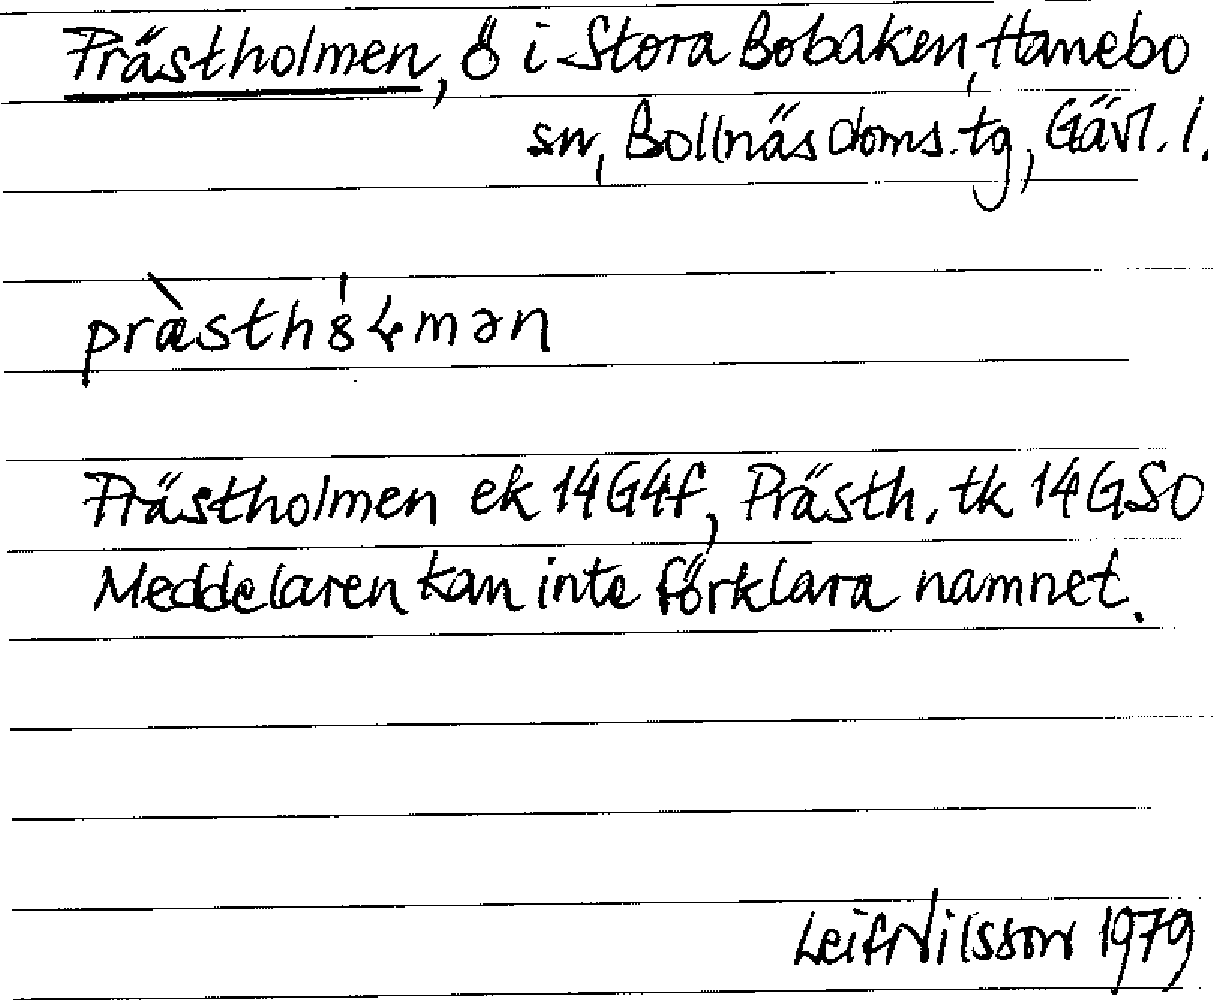 Prästholmen, ö i Stora Bobaken, Hanebo
sn, Bollnäs doms. tg, Gävl. l.
præ̀sthȣ́ɬmən
Prästholmen ek 14G4f, Prästh. tk 14GSO
Meddelaren kan inte förklara namnet.
Leif Nilsson 1979